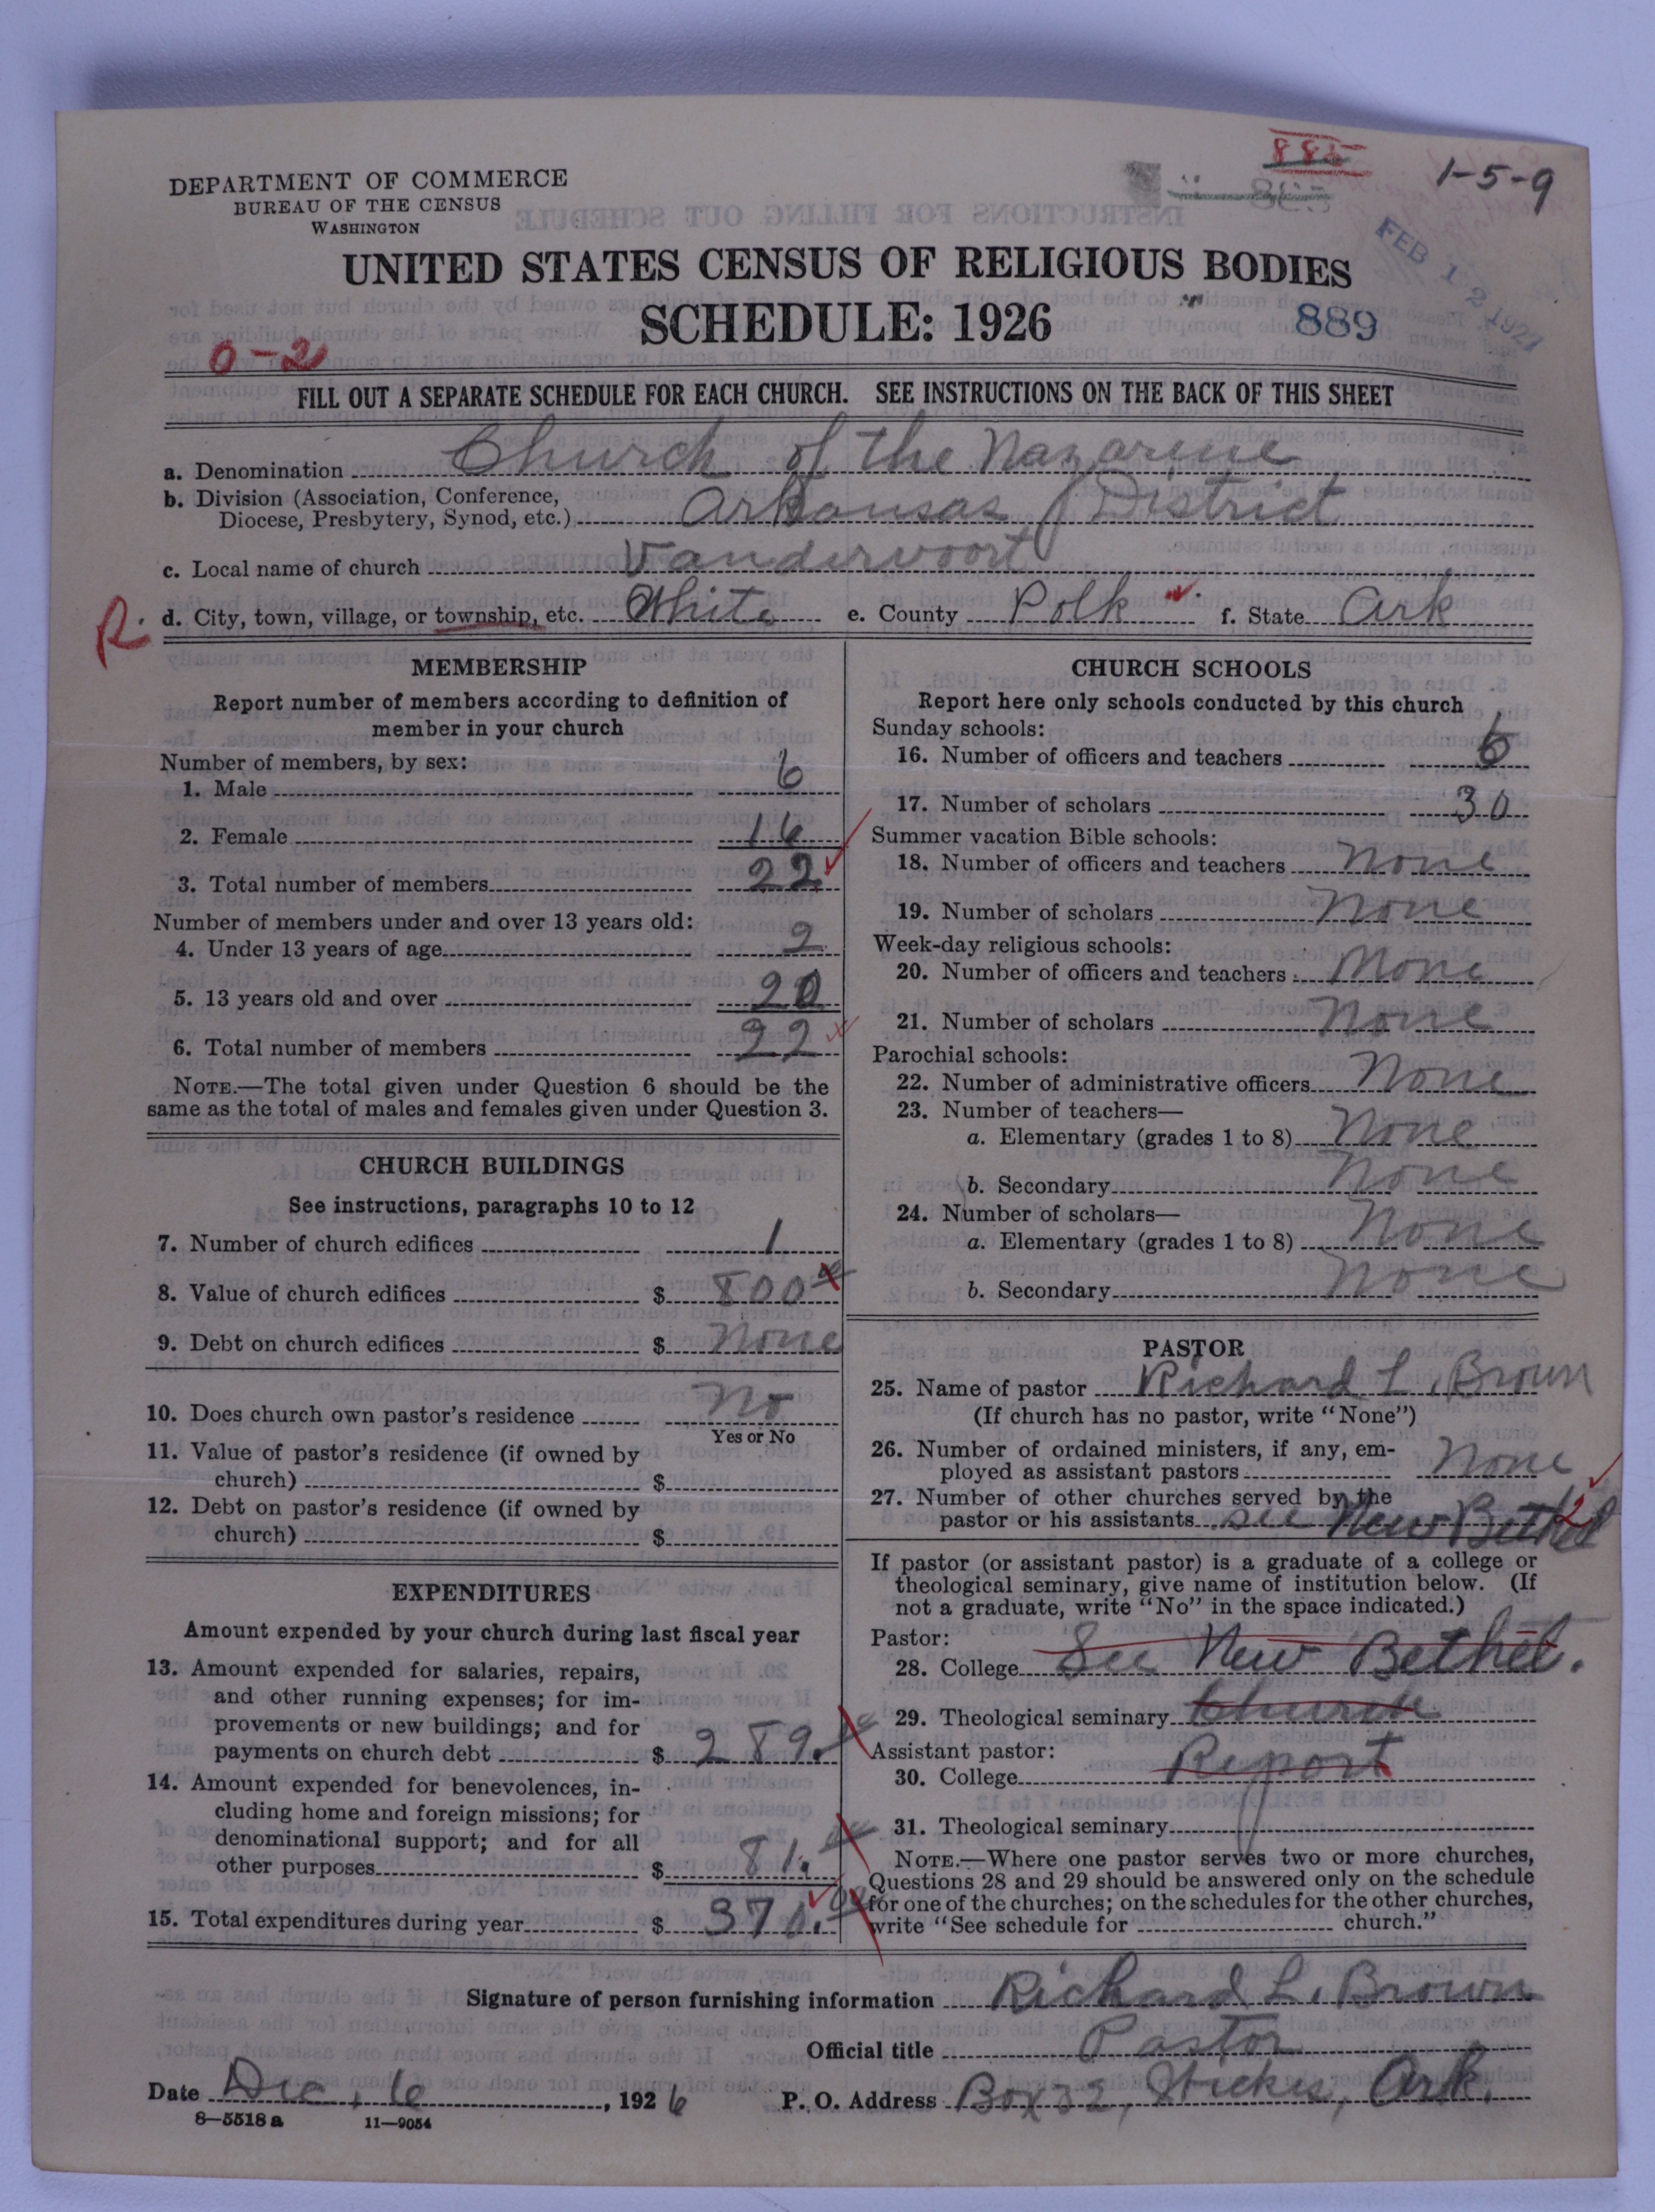 885
1-5-9
DEPARTMENT OF COMMERCE
BUREAU OF THE CENSUS
WASHINGTON
FEB 12 1927
UNITED STATES CENSUS OF RELIGIOUS BODIES
SCHEDULE: 1926
889
0-2
FILL OUT A SEPARATE SCHEDULE FOR EACH CHURCH. SEE INSTRUCTIONS ON THE BACK OF THIS SHEET
a. Denomination Church of the Nazarene
b. Division (Association, Conference,
Diocese, Presbytery, Synod, etc.) Arkansas District
c. Local name of church Vandervoort
R. d. City, town, village, or township, etc. White e. County Polk f. State Ark
MEMBERSHIP
Report number of members according to definition of
member in your church
Number of members, by sex:
1. Male 6
2. Female 16
3. Total number of members 22
Number of members under and over 13 years old:
4. Under 13 years of age 2
5. 13 years old and over 20
6. Total number of members 22
NOTE.—The total given under Question 6 should be the
same as the total of males and females given under Question 3.
CHURCH BUILDINGS
See instructions, paragraphs 10 to 12
7. Number of church edifices 1
8. Value of church edifices $ 800
9. Debt on church edifices $ None
10. Does church own pastor's residence No
Yes or No
11. Value of pastor's residence (if owned by
church) $
12. Debt on pastor's residence (if owned by
church) $
EXPENDITURES
Amount expended by your church during last fiscal year
13. Amount expended for salaries, repairs,
and other running expenses; for im-
provements or new buildings; and for
payments on church debt $ 289.
14. Amount expended for benevolences, in-
cluding home and foreign missions; for
denominational support; and for all
other purposes $ 81.
15. Total expenditures during year $ 370.
CHURCH SCHOOLS
Report here only schools conducted by this church
Sunday schools:
16. Number of officers and teachers 6
17. Number of scholars 30
Summer vacation Bible schools:
18. Number of officers and teachers None
19. Number of scholars None
Week-day religious schools:
20. Number of officers and teachers None
21. Number of scholars None
Parochial schools:
22. Number of administrative officers None
23. Number of teachers—
a. Elementary (grades 1 to 8) None
b. Secondary None
24. Number of scholars—
a. Elementary (grades 1 to 8) None
b. Secondary None
PASTOR
25. Name of pastor Richard L. Brown
(If church has no pastor, write "None")
26. Number of ordained ministers, if any, em-
ployed as assistant pastors None
27. Number of other churches served by the
pastor or his assistants see New Bethel 2
If pastor (or assistant pastor) is a graduate of a college or
theological seminary, give name of institution below. (If
not a graduate, write "No" in the space indicated.)
Pastor:
28. College See New Bethel.
29. Theological seminary Church
Assistant pastor:
30. College Report
31. Theological seminary
NOTE.—Where one pastor serves two or more churches,
Questions 28 and 29 should be answered only on the schedule
for one of the churches; on the schedules for the other churches,
write "See schedule for church."
Signature of person furnishing information Richard L. Brown
Official title Pastor
Date Dec. 6, 1926 P. O. Address Box 32, Hickis, Ark.
8—5518 a 11—9054